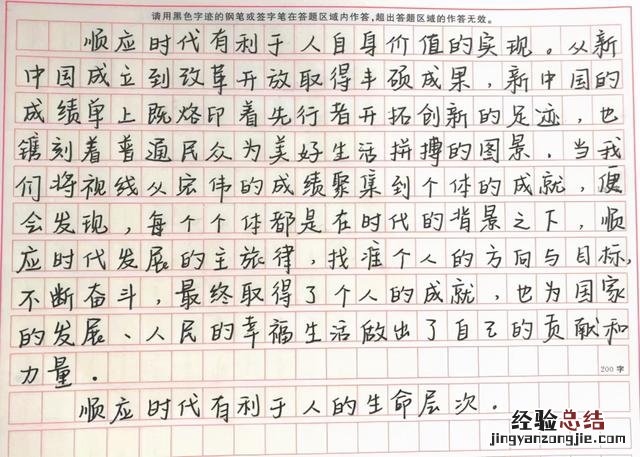 请用黑色字迹的钢笔或签字笔在答题区域内作答,超出答题区域的作答无效。
顺应时代有利于人自身价值的实现。从新
中国成立到改革开放取得丰硕成果，新中国的
成绩单上既烙印着先行者开拓创新的足迹，也
镌刻着普通民众为美好生活拼搏的图景。当我
们将视线从宏伟的成绩聚集到个体的成就，便
会发现，每个个体都是在时代的背景之下，顺
应时代发展的主旋律，找准个人的方向与目标，
不断奋斗，最终取得了个人的成就，也为国家
的发展、人民的幸福生活做出了自己的贡献和
力量.
200字
顺应时代有利于人的生命层次.
经验总结
jingyanzongjie.com